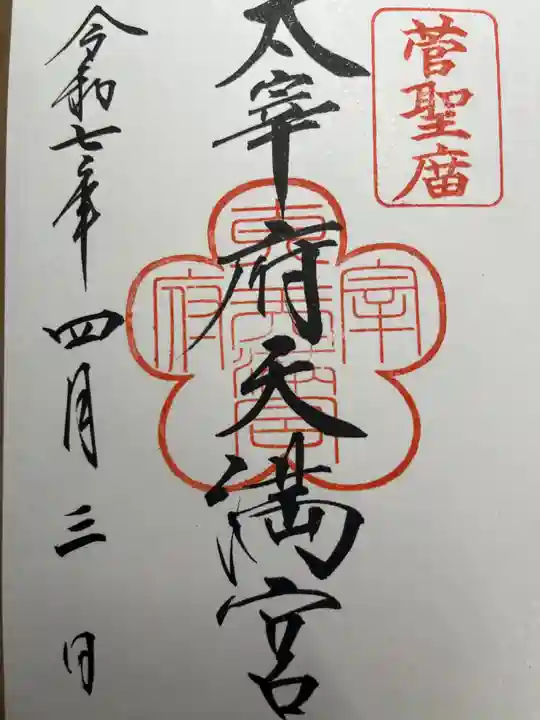 菅聖庿
太宰府天満宮
令和七年四月三日
宰
府